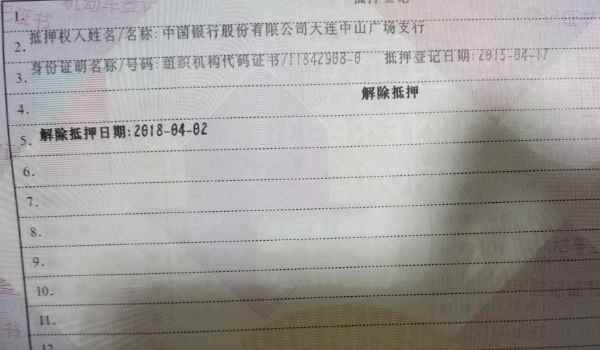 1.
2. 抵押权人姓名/名称:中国银行股份有限公司大连中山广场支行
3. 身份证明名称/号码:组织机构代码证书/11842908-0 抵押登记日期:2015-04-17
4. 解除抵押
5. 解除抵押日期:2018-04-02
6.
7.
8.
9.
10.
11.
12.